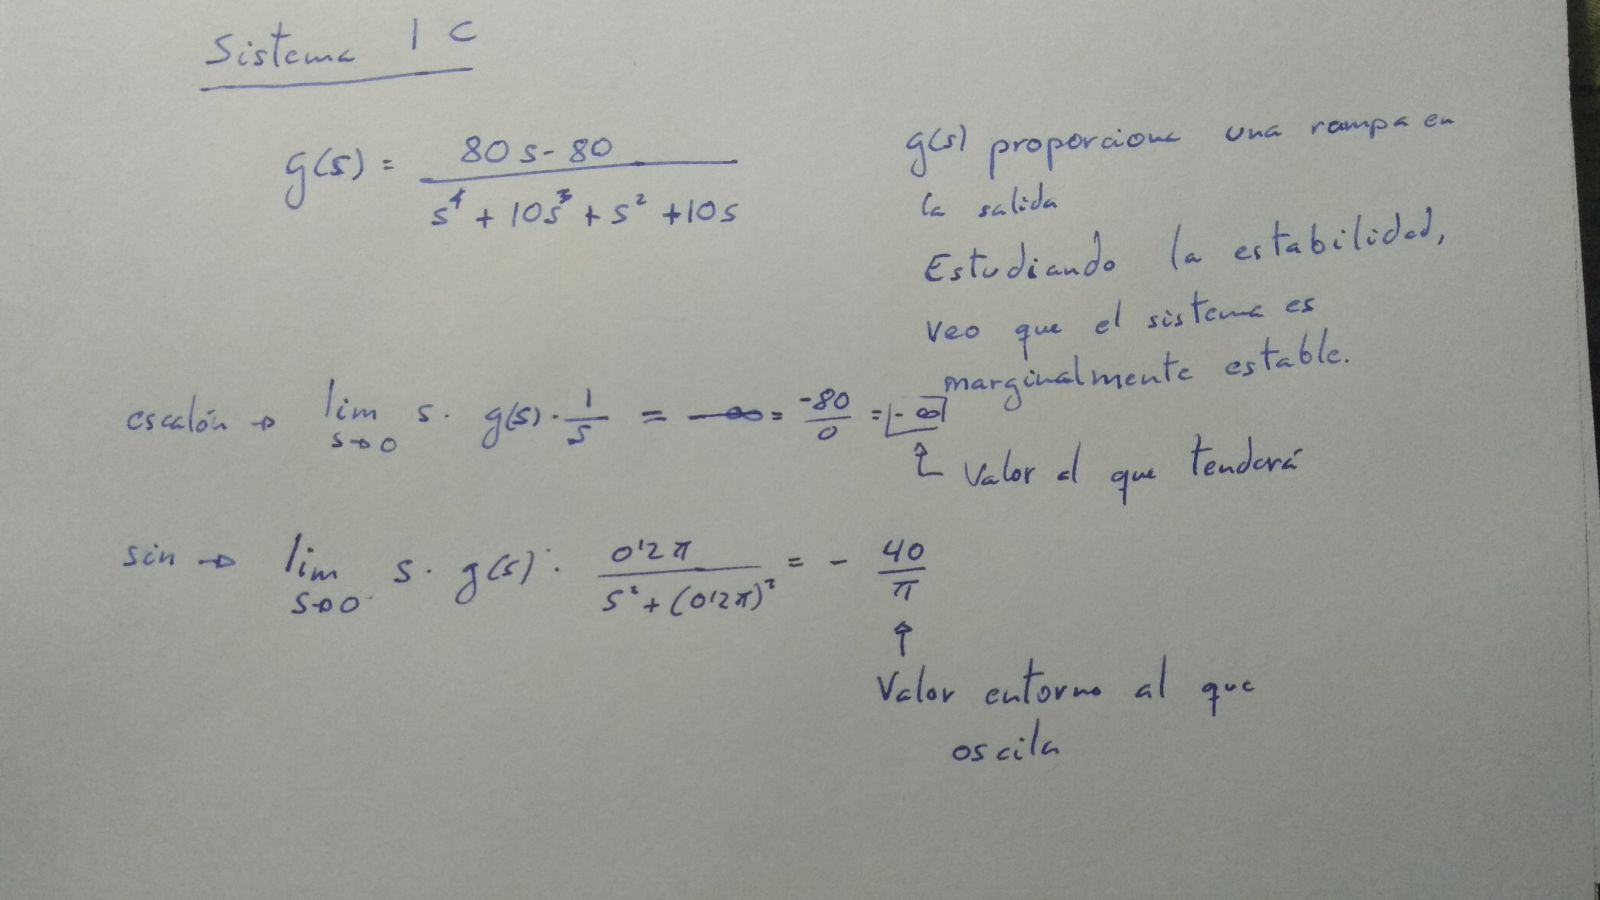 Sistema 1 C
g(s) = (80s - 80) / (s^4 + 10s^3 + s^2 + 10s)
g(s) proporciona una rampa en
la salida
Estudiando la estabilidad,
veo que el sistema es
marginalmente estable.
escalón → lim s→0 s · g(s) · 1/s = -∞ = -80/0 = -∞
↑ Valor al que tenderá
sin → lim s→0 s · g(s) · 0'2π / (s^2 + (0'2π)^2) = - 40/π
↑
Valor entorno al que
oscila